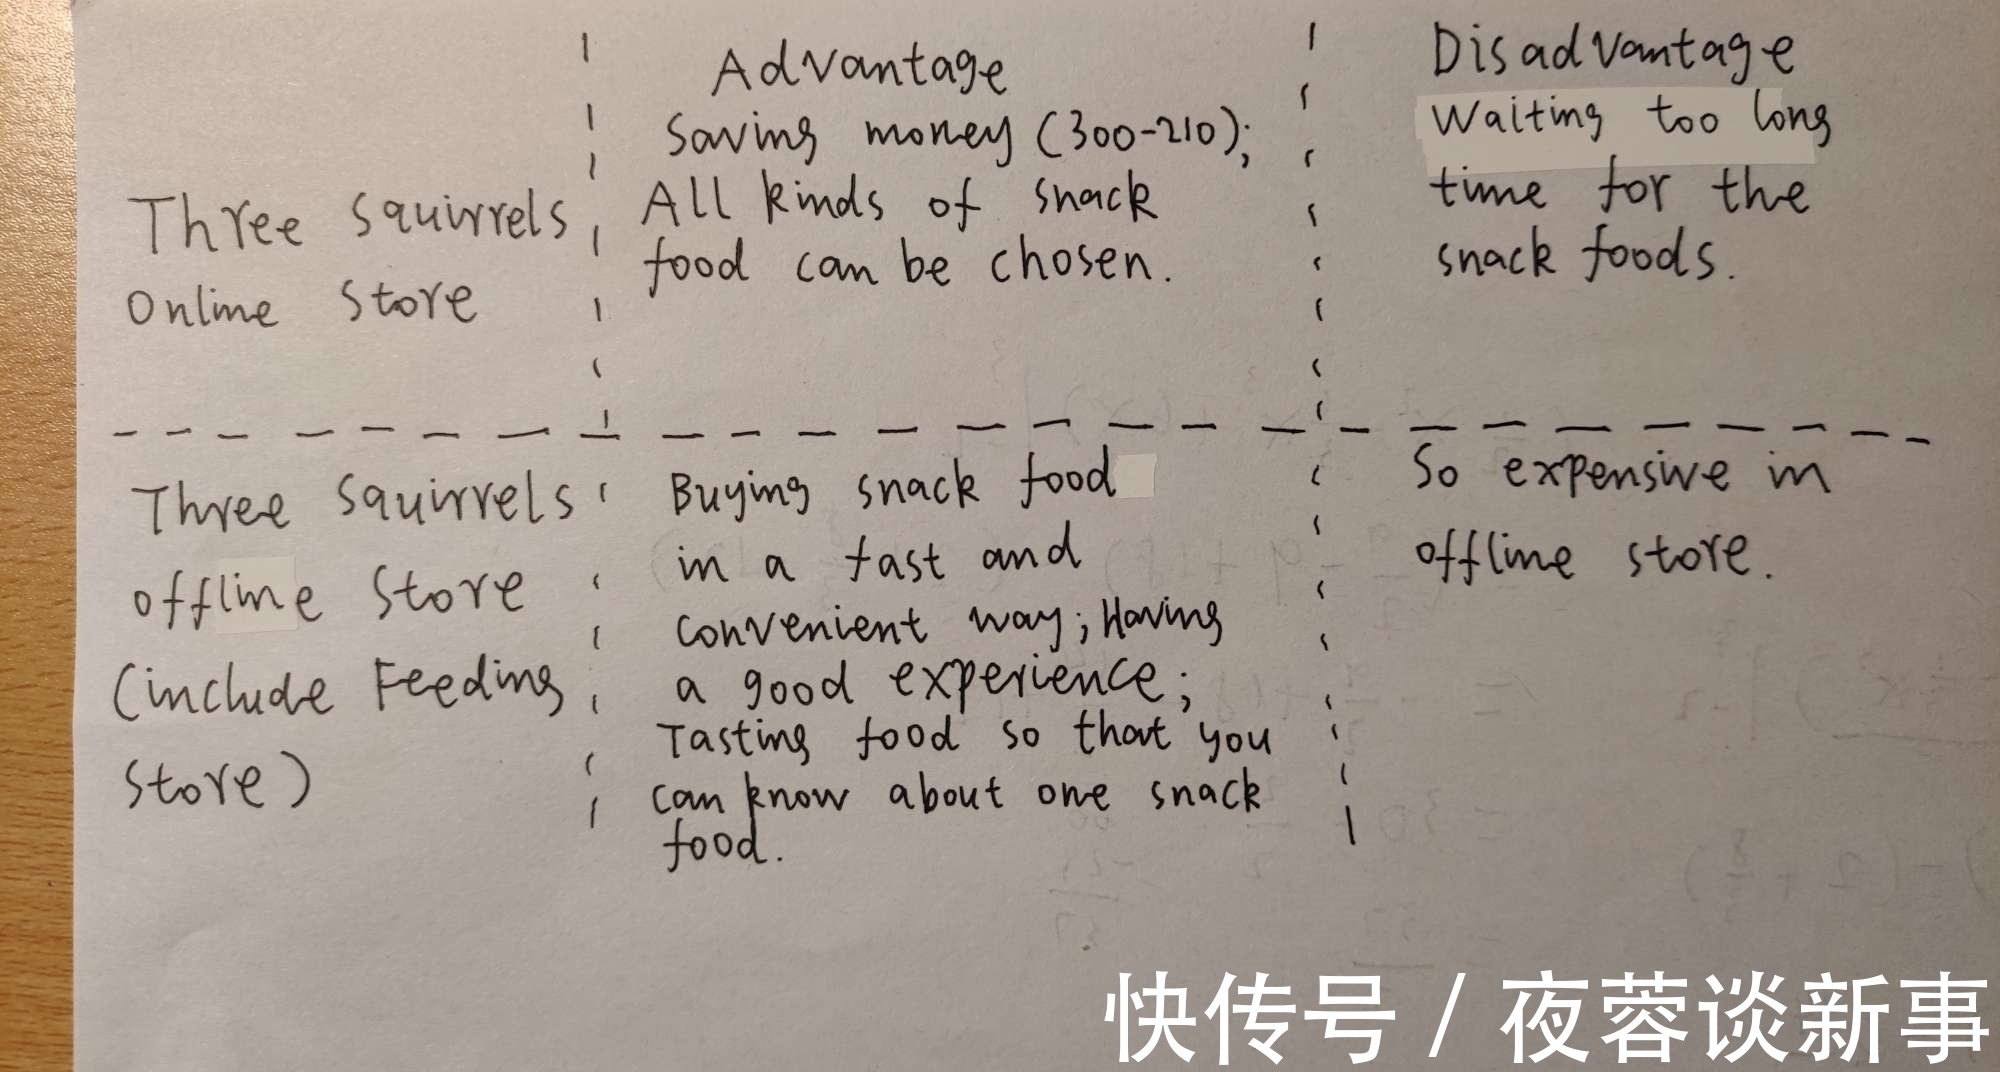 Advantage
Saving money (300-210);
All kinds of snack
food can be chosen.
Disadvantage
Waiting too long
time for the
snack foods.
Three Squirrels
Online Store
Three Squirrels
offline Store
(include Feeding
Store)
Buying snack food
in a fast and
convenient way; Having
a good experience;
Tasting food so that you
can know about one snack
food.
So expensive in
offline store.
快传号 / 夜蓉谈新事